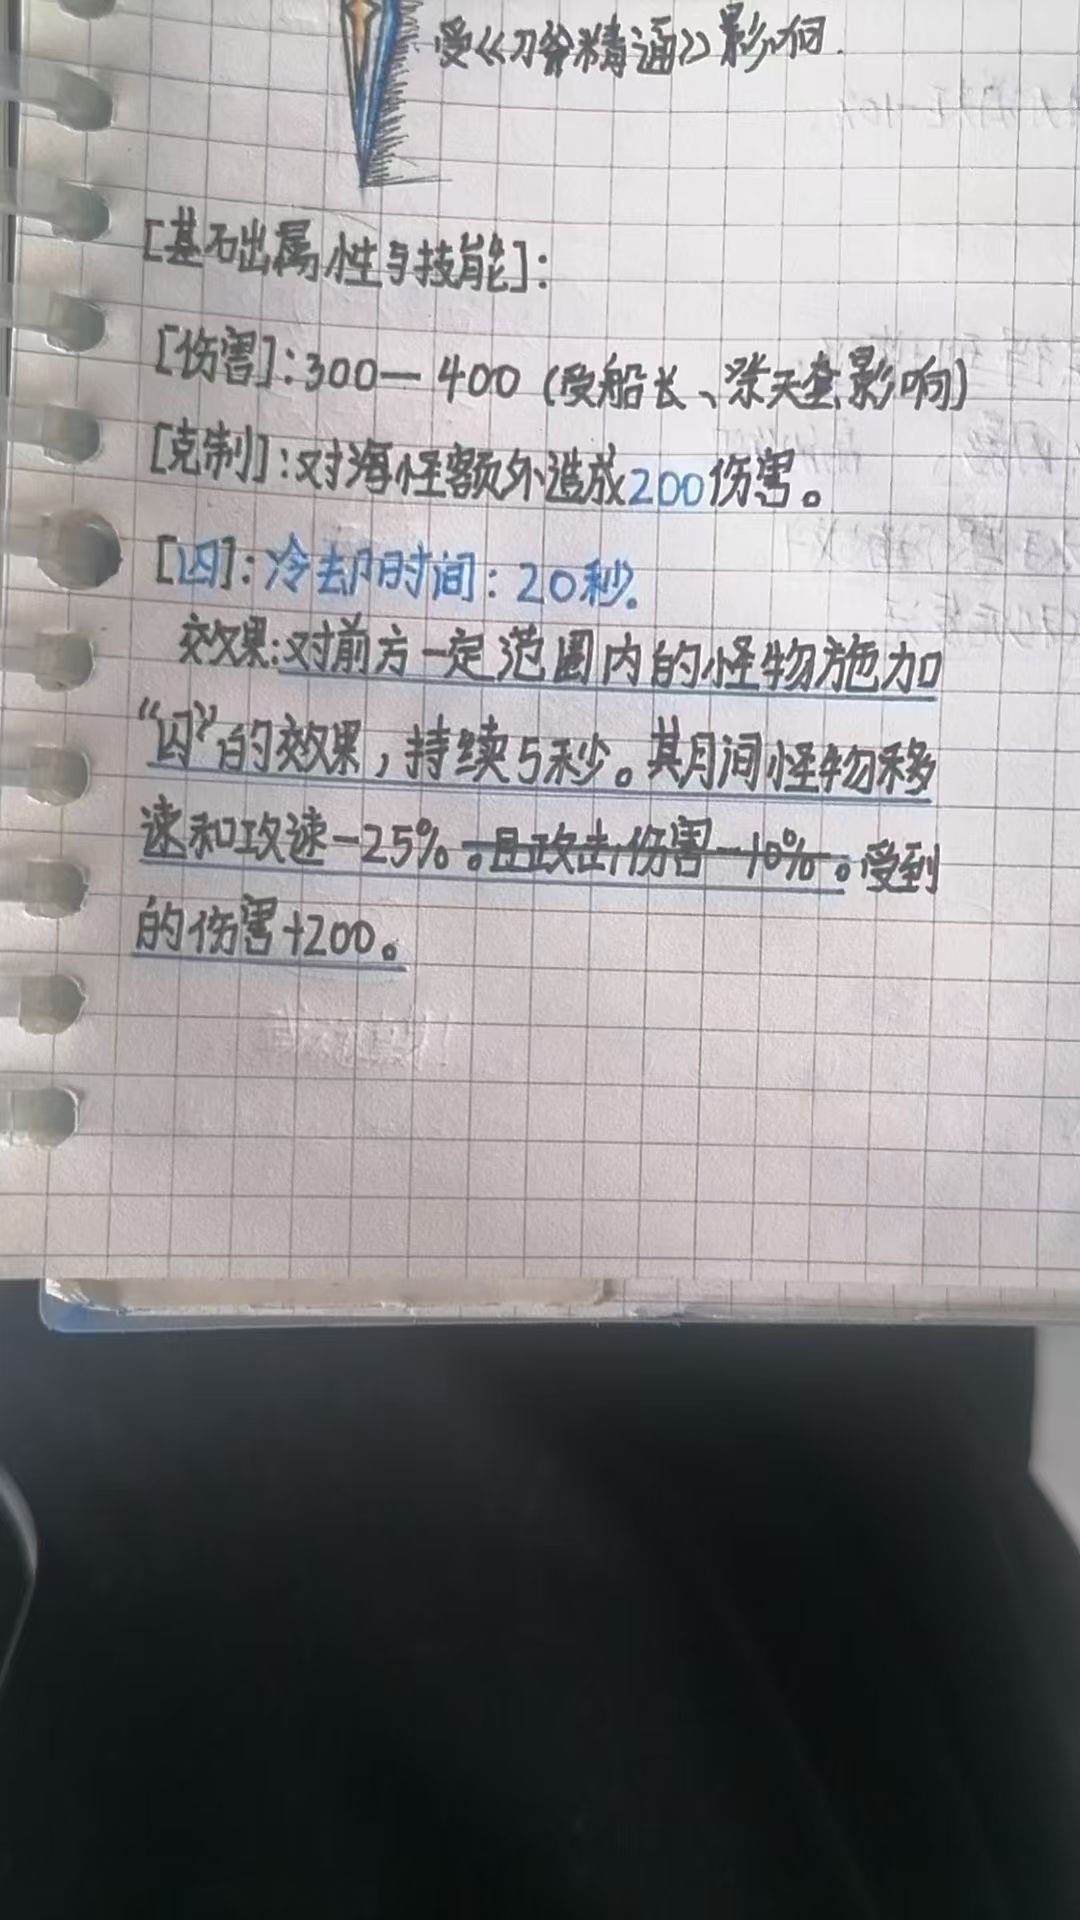 受《刀斧精通》影响.
[基础属性与技能]:
[伤害]:300—400(受船长、涨天盒影响)
[克制]:对海怪额外造成200伤害。
[囚]:冷却时间:20秒.
效果:对前方一定范围内的怪物施加
“囚”的效果,持续5秒。其月间怪物移
速和攻速-25%。且攻击伤害-10%。受到
的伤害+200。